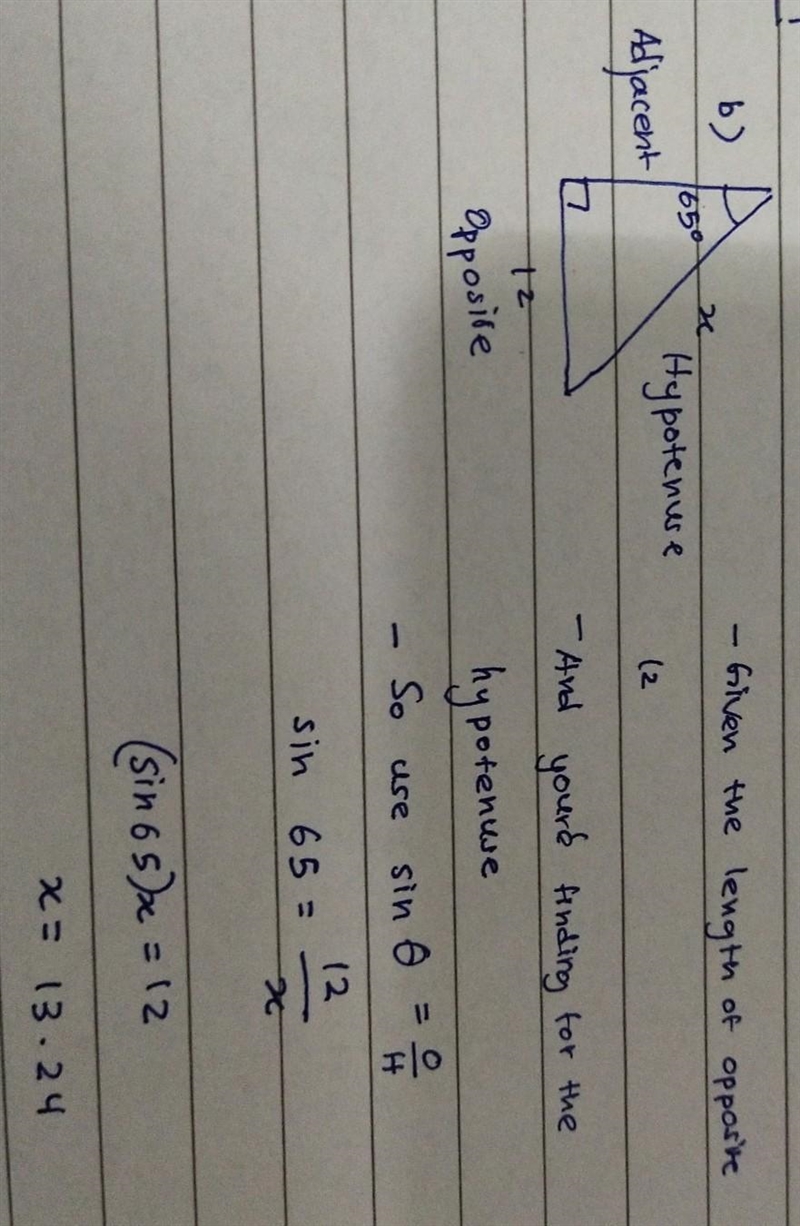 b)
65°
x
Adjacent
Hypotenuse
12
Opposite
- Given the length of opposite
12
- And you're finding for the
hypotenuse
- So use sin θ = O/H
sin 65 = 12/x
(sin 65)x = 12
x = 13.24